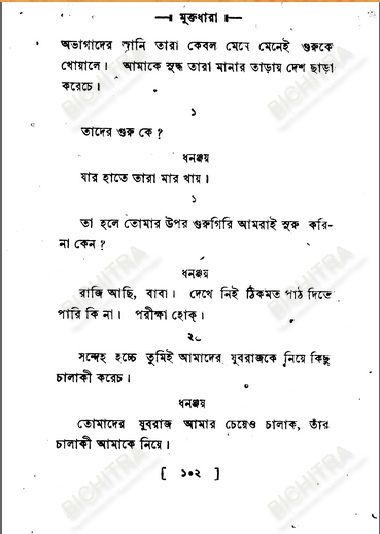 মুক্তধারা
অভাগাদের জানি তারা কেবল মেনে মেনেই গুরুকে
খোয়ালে। আমাকে সুদ্ধ তারা মানার তাড়ায় দেশ ছাড়া
করেচে।
১
তাদের গুরু কে ?
ধনঞ্জয়
যার হাতে তারা মার খায়।
১
তা হলে তোমার উপর গুরুগিরি আমরাই সুরু করি-
না কেন ?
ধনঞ্জয়
রাজি আছি, বাবা। দেখে নিই ঠিকমত পাঠ দিতে
পারি কি না। পরীক্ষা হোক্।
২
সন্দেহ হচ্চে তুমিই আমাদের যুবরাজকে নিয়ে কিছু
চালাকী করেচ।
ধনঞ্জয়
তোমাদের যুবরাজ আমার চেয়েও চালাক, তাঁর
চালাকী আমাকে নিয়ে।
[ ১০২ ]
BICHITRA
BICHITRA
BICHITRA
BICHITRA
BICHITRA
BICHITRA